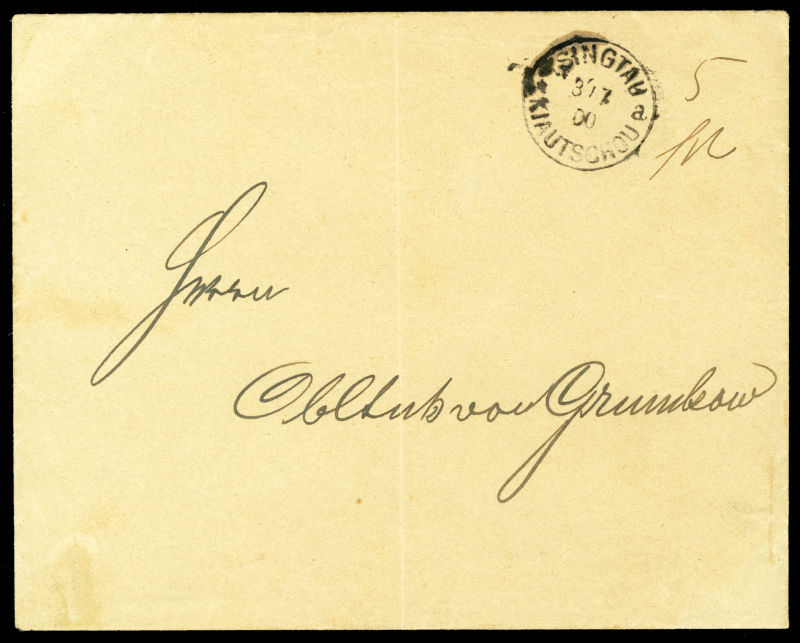 TSINGTAU
a
3/7
00
KIAUTSCHOU
5
Herrn
Obltnt von Grumbkow